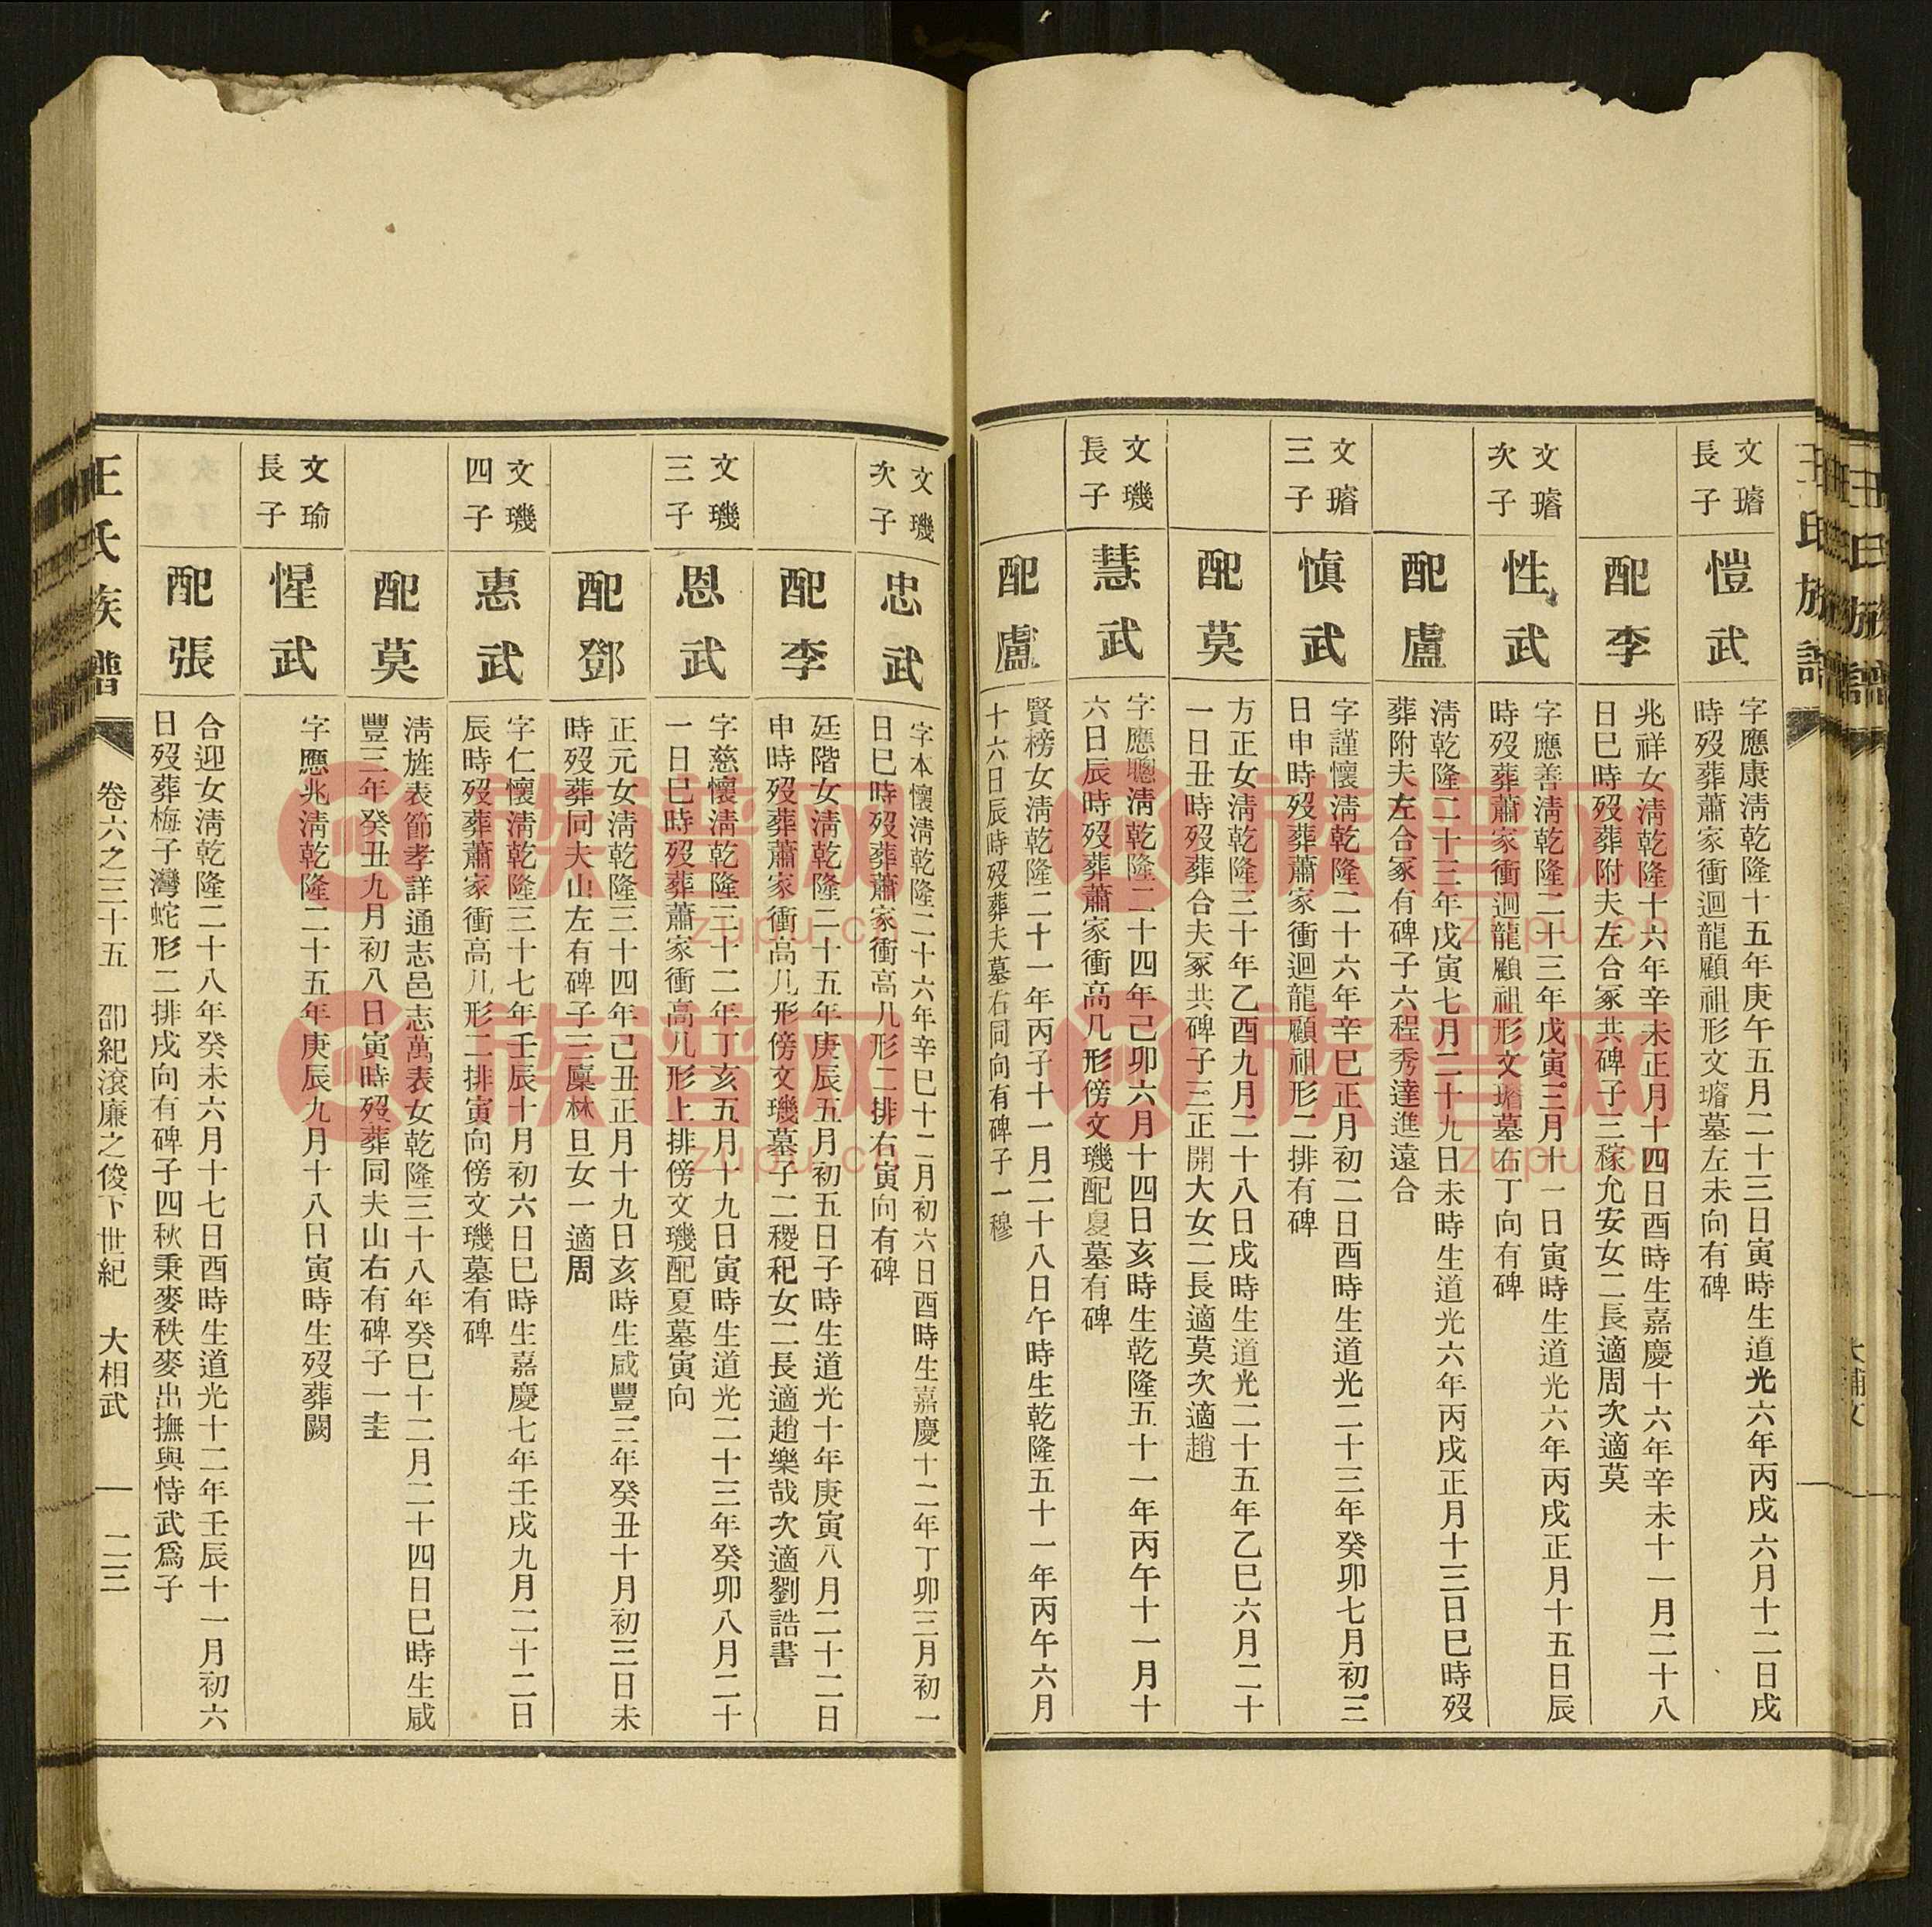 王氏族譜
文璿
長子
愷武
字應康淸乾隆十五年庚午五月二十三日寅時生道光六年丙戌六月十二日戌
時歿葬蕭家衝迴龍顧祖形文璿墓左未向有碑
配李
兆祥女淸乾隆十六年辛未正月十四日酉時生嘉慶十六年辛未十一月二十八
日巳時歿葬附夫左合冢共碑子三稼允安女二長適周次適莫
文璿
次子
性武
字應善淸乾隆二十三年戊寅三月十一日寅時生道光六年丙戌正月十五日辰
時歿葬蕭家衝迴龍顧祖形文璿墓右丁向有碑
配盧
淸乾隆二十三年戊寅七月二十九日未時生道光六年丙戌正月十三日巳時歿
葬附夫左合冢有碑子六程秀達進遠合
文璿
三子
愼武
字謹懷淸乾隆二十六年辛巳正月初二日酉時生道光二十三年癸卯七月初三
日申時歿葬蕭家衝迴龍顧祖形二排有碑
配莫
方正女淸乾隆三十年乙酉九月二十八日戌時生道光二十五年乙巳六月二十
一日丑時歿葬合夫冢共碑子三正開大女二長適莫次適趙
文璣
長子
慧武
字應聰淸乾隆二十四年己卯六月十四日亥時生乾隆五十一年丙午十一月十
六日辰時歿葬蕭家衝高几形傍文璣配夏墓有碑
配盧
賢榜女淸乾隆二十一年丙子十一月二十八日午時生乾隆五十一年丙午六月
十六日辰時歿葬夫墓右同向有碑子一穆
文璣
次子
忠武
字本懷淸乾隆二十六年辛巳十二月初六日酉時生嘉慶十二年丁卯三月初一
日巳時歿葬蕭家衝高几形二排右寅向有碑
配李
廷階女淸乾隆二十五年庚辰五月初五日子時生道光十年庚寅八月二十二日
申時歿葬蕭家衝高几形傍文璣墓子二稷秬女二長適趙樂哉次適劉誥書
文璣
三子
恩武
字慈懷淸乾隆三十二年丁亥五月十九日寅時生道光二十三年癸卯八月二十
一日巳時歿葬蕭家衝高几形上排傍文璣配夏墓寅向
配鄧
正元女淸乾隆三十四年己丑正月十九日亥時生咸豐三年癸丑十月初三日未
時歿葬同夫山左有碑子三廩林旦女一適周
文璣
四子
惠武
字仁懷淸乾隆三十七年壬辰十月初六日巳時生嘉慶七年壬戌九月二十二日
辰時歿葬蕭家衝高几形二排寅向傍文璣墓有碑
配莫
淸旌表節孝詳通志邑志萬表女乾隆三十八年癸巳十二月二十四日巳時生咸
豐三年癸丑九月初八日寅時歿葬同夫山右有碑子一圭
文瑜
長子
惺武
字應兆淸乾隆二十五年庚辰九月十八日寅時生歿葬闕
配張
合迎女淸乾隆二十八年癸未六月十七日酉時生道光十二年壬辰十一月初六
日歿葬梅子灣蛇形二排戌向有碑子四秋秉麥秩麥出撫與恃武爲子
王氏族譜 卷六之三十五 邵紀滾廉之俊下世紀 大相武 一二三
族谱网
zupu.cn
族谱网
zupu.cn
族谱网
zupu.cn
族谱网
zupu.cn